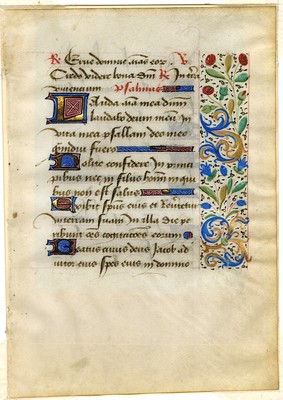 R Erue domine aias eor V
Credo videre bona dni R In terra
viventium psalmus
Lauda aia mea dnm
laudabo deum meu in
vita mea psallam deo meo
quandiu fuero
Nolite confidere in princi
pibus nec in filiis hominu in qui
bus non est salus
Exibit sps eius et revertetur
in terram suam in illa die pe
ribunt oes cogitationes eorum
Beatus cuius deus Jacob ad
iutor eius spes eius in domino